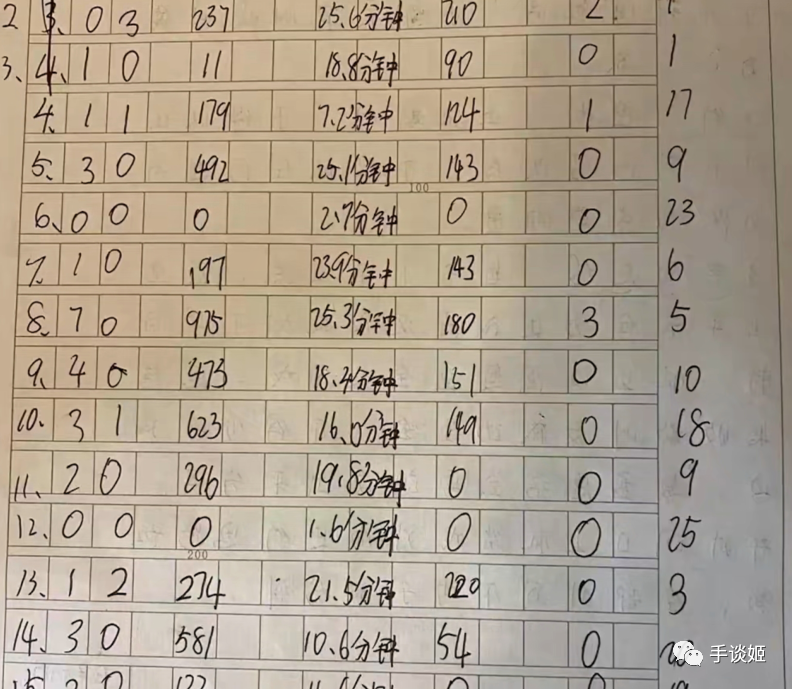 2 3. 0 3 237 25.6分钟 210 2
3、4. 1 0 11 18.8分钟 90 0 1
4. 1 1 179 7.2分钟 124 1 17
5. 3 0 492 25.1分钟 143 0 9
100
6. 0 0 0 2.7分钟 0 0 23
7. 1 0 197 23.9分钟 143 0 6
8. 7 0 975 25.3分钟 180 3 5
9. 4 0 473 18.4分钟 151 0 10
10. 3 1 623 16.0分钟 149 0 18
11、 2 0 296 19.8分钟 0 0 9
12. 0 0 0 1.6分钟 0 0 25
200
13、 1 2 274 21.5分钟 220 0 3
14. 3 0 581 10.6分钟 54 0
手谈姬